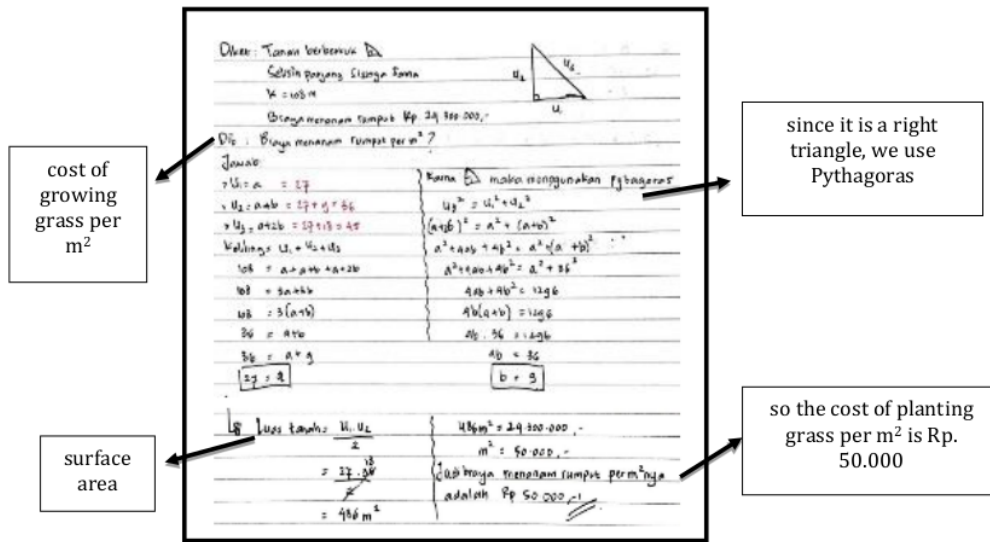 Diket : Taman berbentuk
Selisih panjang sisinya sama
K = 108 m
Biaya menanam rumput Rp. 24.300.000,-
Dit : Biaya menanam rumput per m² ?
Jawab:
U₁ = a = 27
U₂ = a+b = 27+9 = 36
U₃ = a+2b = 27+18 = 45
Keliling = U₁ + U₂ + U₃
108 = a + a+b + a+2b
108 = 3a+3b
108 = 3(a+b)
36 = a+b
36 = a+9
27 = a
Karna maka menggunakan Pythagoras
U₃² = U₁² + U₂²
(a+2b)² = a² + (a+b)²
a²+4ab+4b² = a²+(a+b)²
a²+4ab+4b² = a²+36²
4ab+4b² = 1296
4b(a+b) = 1296
4b . 36 = 1296
4b = 36
b = 9
U₂
U₃
U₁
Luas tanah = U₁.U₂
2
= 27.36 18
2
= 486 m²
486m² = 24.300.000,-
m² = 50.000,-
Jadi biaya menanam rumput per m² nya
adalah Rp 50.000,-
cost of
growing
grass per
m²
surface
area
since it is a right
triangle, we use
Pythagoras
so the cost of planting
grass per m² is Rp.
50.000